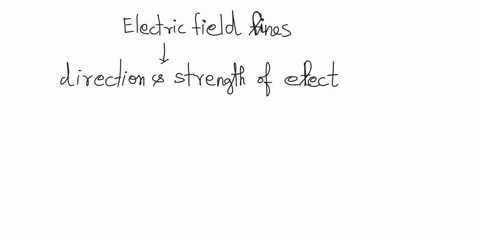 Electric field lines
↓
direction & strength of elect